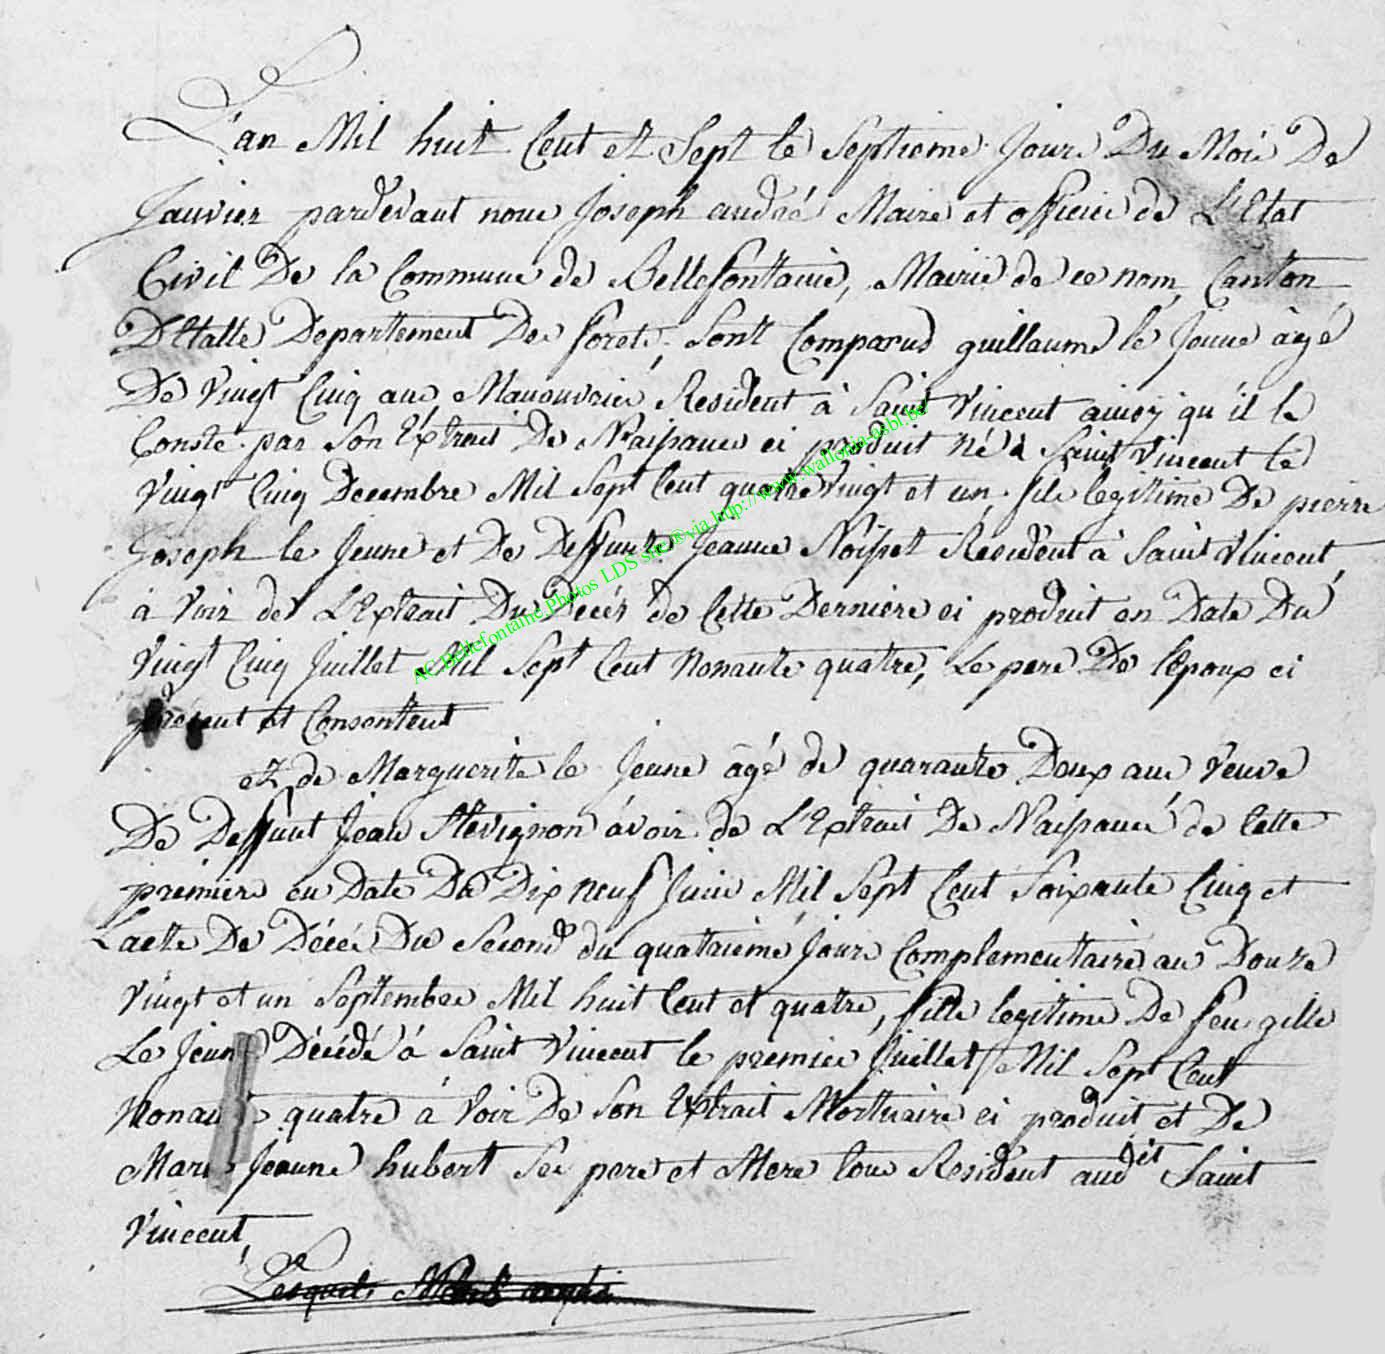 L'an Mil huit Cent et Sept le Septieme Jour Du Mois De
Janvier pardevant nous Joseph andré Maire et officier de L'Etat
Civil De la Commune de Bellefontaine, Mairie de ce nom, Canton
D'Etalle Departement Des forets, Sont Comparus guillaume le Jeune âgé
De Vingt Cinq ans Manouvrier Resident à Saint Vincent ainsy qu'il le
Conste par Son Extrait De Naissance ci produit né à Saint Vincent le
Vingt Cinq Decembre Mil Sept Cent quatre Vingt et un fils legitime De pierre
Joseph le Jeune et De Deffunte Jeanne Noisset Résident à Saint Vincent,
à Voir de L'Extrait Du Décés de Cette Derniere ci produit en Date Du
Vingt Cinq Juillet Mil Sept Cent Nonante quatre, Le pere De l'Epoux ci
présent et Consentent
et de Marguerite le Jeune âgé de quarante Doux ans Veuve
De Deffunt Jean Stevignon àvoir de L'Extrait De Naissance de Cette
premiere en Date Du Dix Neuf Juin Mil Sept Cent Soixante Cinq et
Lacte De Décés Du Second du quatrieme Jour Complementaire an Douze
Vingt et un Septembre Mil huit Cent et quatre, fille legitime De feu gille
Le Jeune Décédé à Saint Vincent le premier Juillet Mil Sept Cent
Nonante quatre à Voir De Son Extrait Mortuaire ci produit et De
Marie Jeanne hubert Ses pere et Mere tous Resident audit Saint
Vincent,
Lesquels
AC Bellefontaine Photos LDS sne® via http://www.wallonia-asbl.be